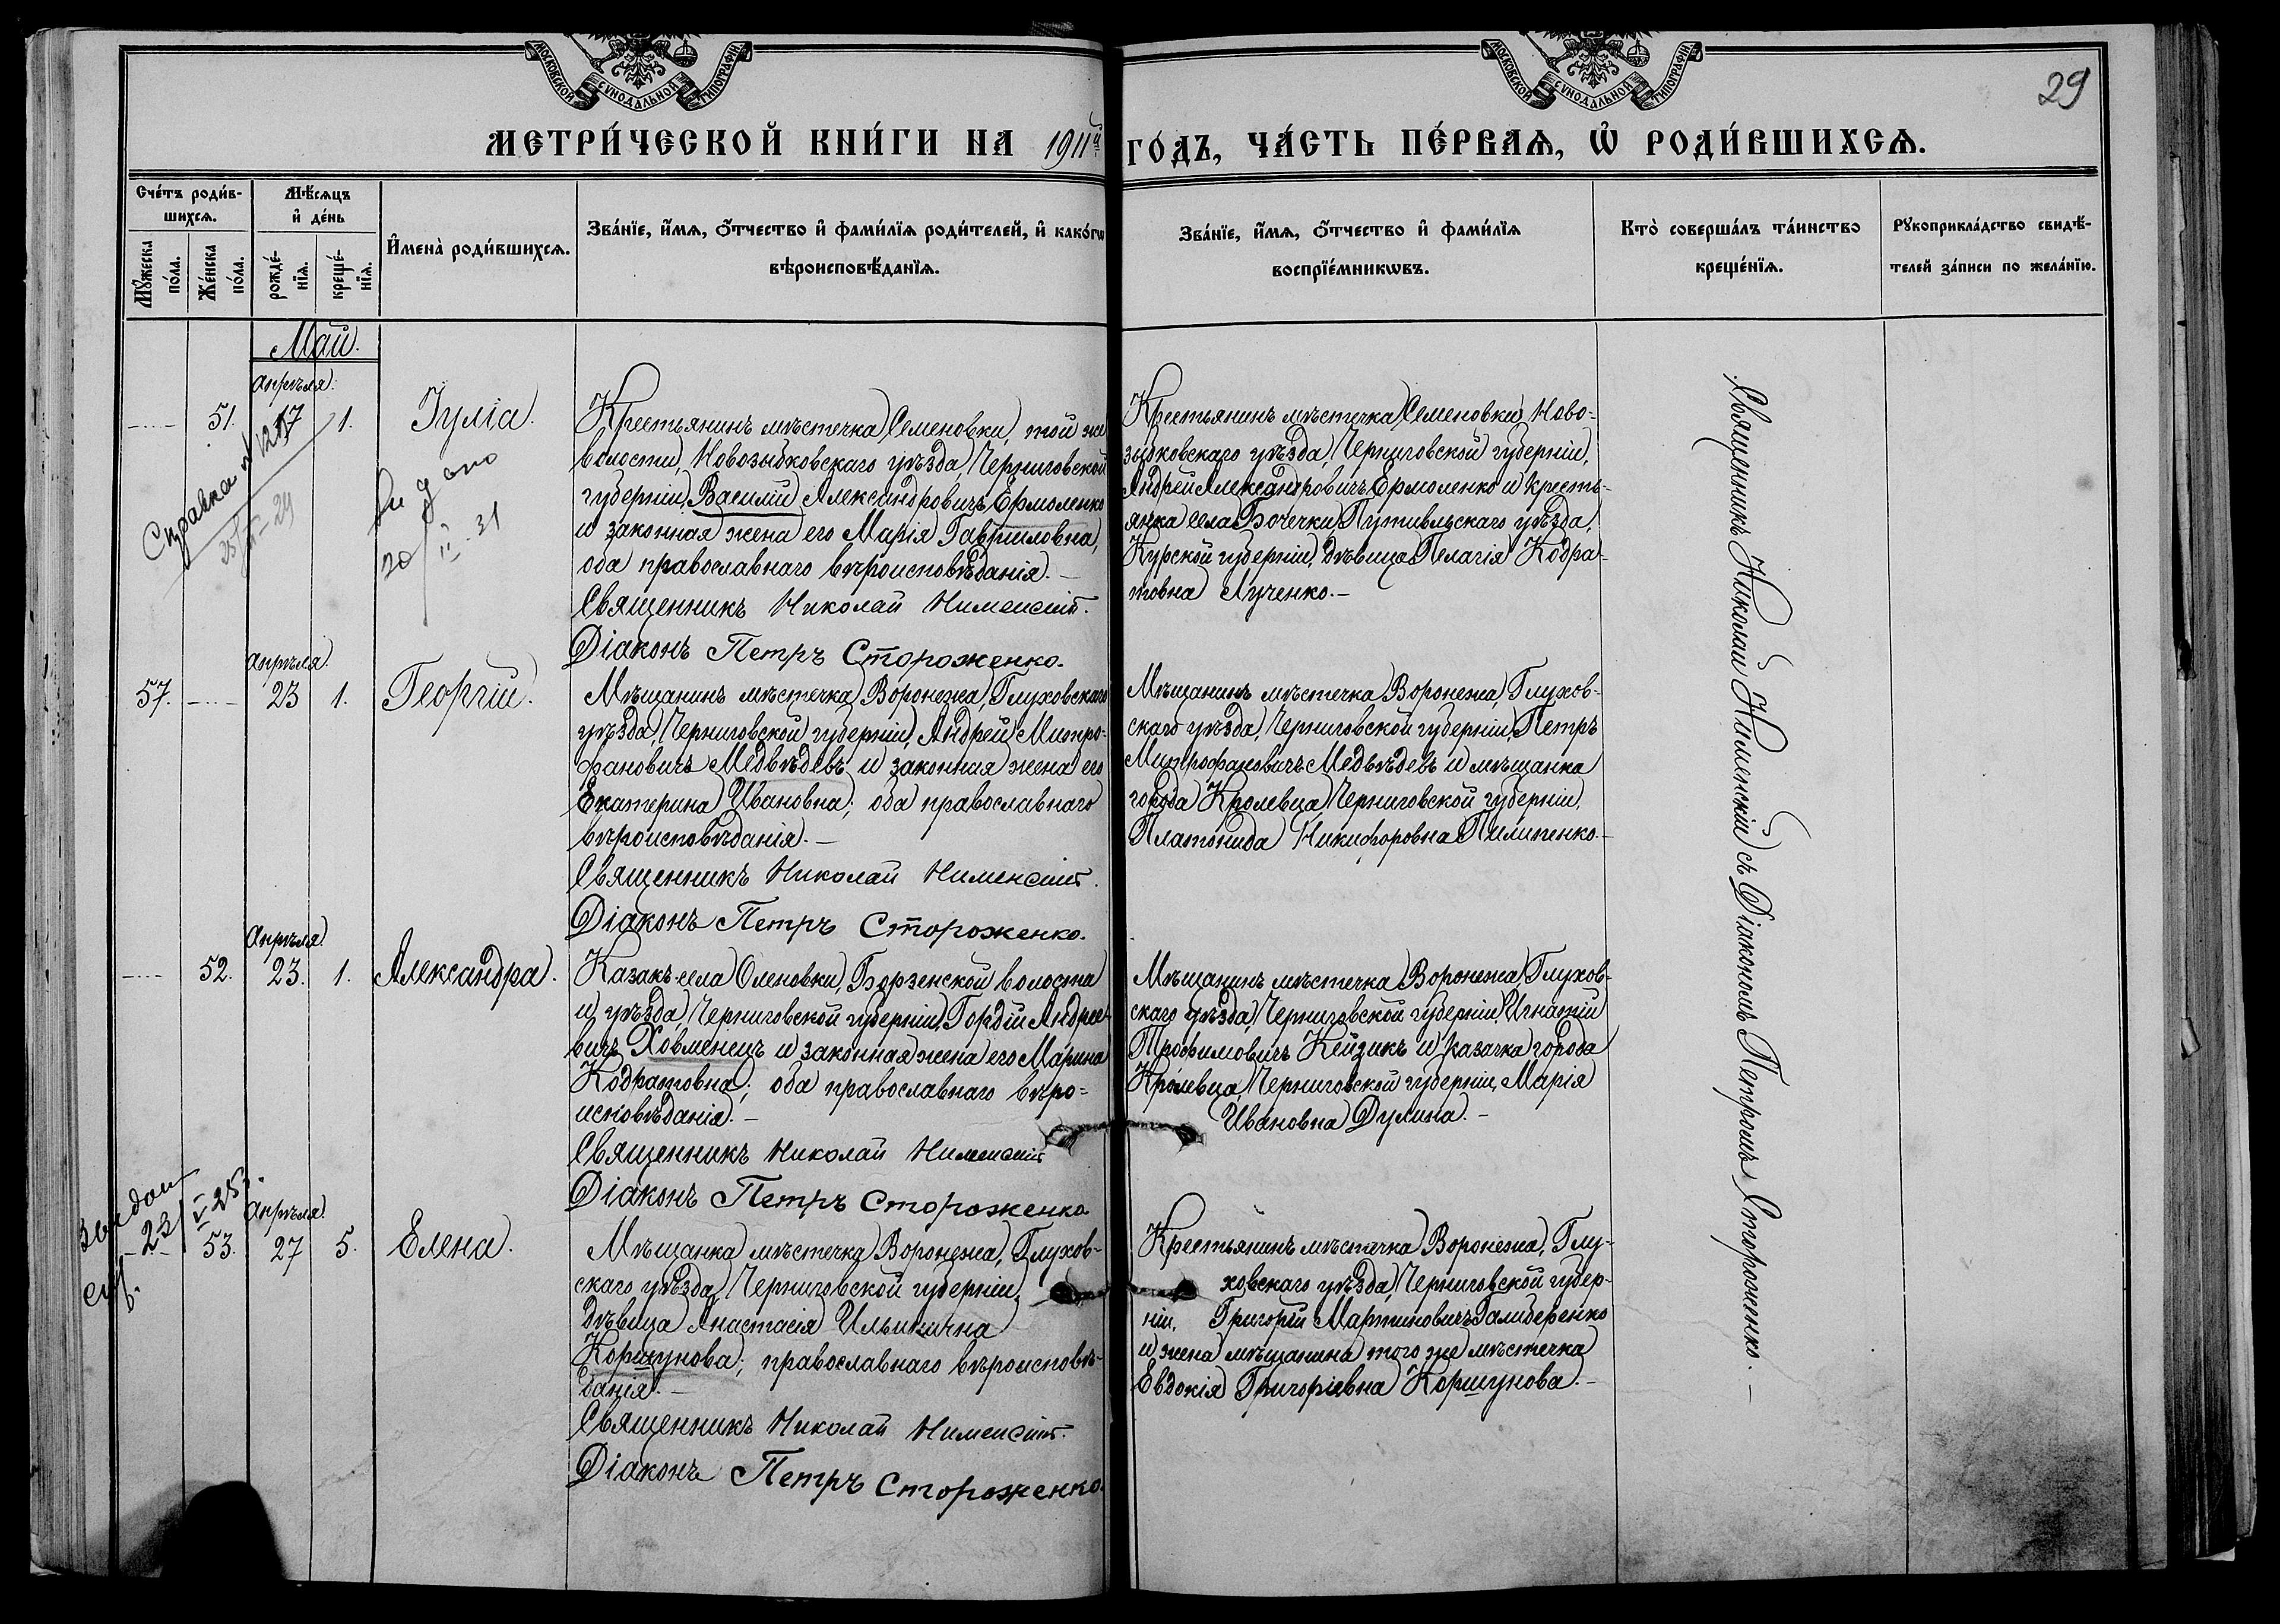 МОСКОВСКОЙ СѴНОДАЛЬНОЙ ТИПОГРАФІИ
МОСКОВСКОЙ СѴНОДАЛЬНОЙ ТИПОГРАФІИ
29
МЕТРИ́ЧЕСКОЙ КНИ́ГИ НА 1911й ГО́ДЪ, ЧА́СТЬ ПЕ́РВАѦ, Ѡ҆ РОДИ́ВШИХСѦ.
Сче́тъ роди́в-
шихсѧ.
Мꙋ́жеска
по́ла.
Же́нска
по́ла.
Мѣ́сѧцъ
и҆ де́нь
рожде́-
нїѧ.
креще́-
нїѧ.
И҆мена̀ роди́вшихсѧ.
Зва́нїе, и҆́мѧ, ѻ҆́тчество и҆ фами́лїѧ роди́телей, и҆ како́гѡ
вѣроисповѣ́данїѧ.
Зва́нїе, и҆́мѧ, ѻ҆́тчество и҆ фами́лїѧ
воспрїе́мникѡвъ.
Кто̀ соверша́лъ та́инство
креще́нїѧ.
Рꙋкоприкла́дство свидѣ́-
телей за́писи по жела́нїю.
Май.
Апрѣля.
51. 17 1. Іулія.
Справка №
29
Видано
20/II-31
Крестьянинъ мѣстечка Семеновки, той же
волости, Новозыбковскаго уѣзда, Черниговской
губерніи, Василій Александровичъ Ермоленко
и законная жена его Марія Гавриловна,
оба православнаго вѣроисповѣданія.—
Священникъ Николай Нименскій.
Діаконъ Петръ Стороженко.
Крестьянинъ мѣстечка Семеновки, Ново-
зыбковскаго уѣзда, Черниговской губерніи,
Андрей Александровичъ Ермоленко и кресть-
янка села Бочечки, Путивльскаго уѣзда,
Курской губерніи, дѣвица Пелагія Кодра-
товна Лученко.—
Апрѣля.
57. 23 1. Георгій.
Мѣщанинъ мѣстечка Воронежа, Глуховскаго
уѣзда, Черниговской губерніи, Андрей Митро-
фановичъ Медвѣдевъ и законная жена его
Екатерина Ивановна; оба православнаго
вѣроисповѣданія.—
Священникъ Николай Нименскій.
Діаконъ Петръ Стороженко.
Мѣщанинъ мѣстечка Воронежа, Глухов-
скаго уѣзда, Черниговской губерніи, Петръ
Митрофановичъ Медвѣдевъ и мѣщанка
города Кролевца, Черниговской губерніи,
Платонида Никифоровна Пилипенко.—
Апрѣля.
52. 23. 1. Александра.
Казакъ села Оленовки, Борзенской волости
и уѣзда, Черниговской губерніи, Гордій Андрее-
вичъ Ховменецъ и законная жена его Марина
Кодратовна; оба православнаго вѣро-
исповѣданія.—
Священникъ Николай Нименскій
Діаконъ Петръ Стороженко
Мѣщанинъ мѣстечка Воронежа, Глухов-
скаго уѣзда, Черниговской губерніи, Игнатій
Трофимовичъ Кейзикъ и казачка города
Кролевца, Черниговской губерніи, Марія
Ивановна Дулина.—
Апрѣля.
53. 27 5. Елена.
Мѣщанка мѣстечка Воронежа, Глухов-
скаго уѣзда, Черниговской губерніи,
дѣвица Анастасія Ильинична
Коршунова; православнаго вѣроисповѣ-
данія.—
Священникъ Николай Нименскій.
Діаконъ Петръ Стороженко.
Крестьянинъ мѣстечка Воронежа, Глу-
ховскаго уѣзда, Черниговской губер-
ніи, Григорій Мартиновичъ Галидеренко
и жена мѣщанина того же мѣстечка
Евдокія Григоріевна Коршунова.—
Священникъ Николай Нименскій съ Діакономъ Петромъ Стороженко.—